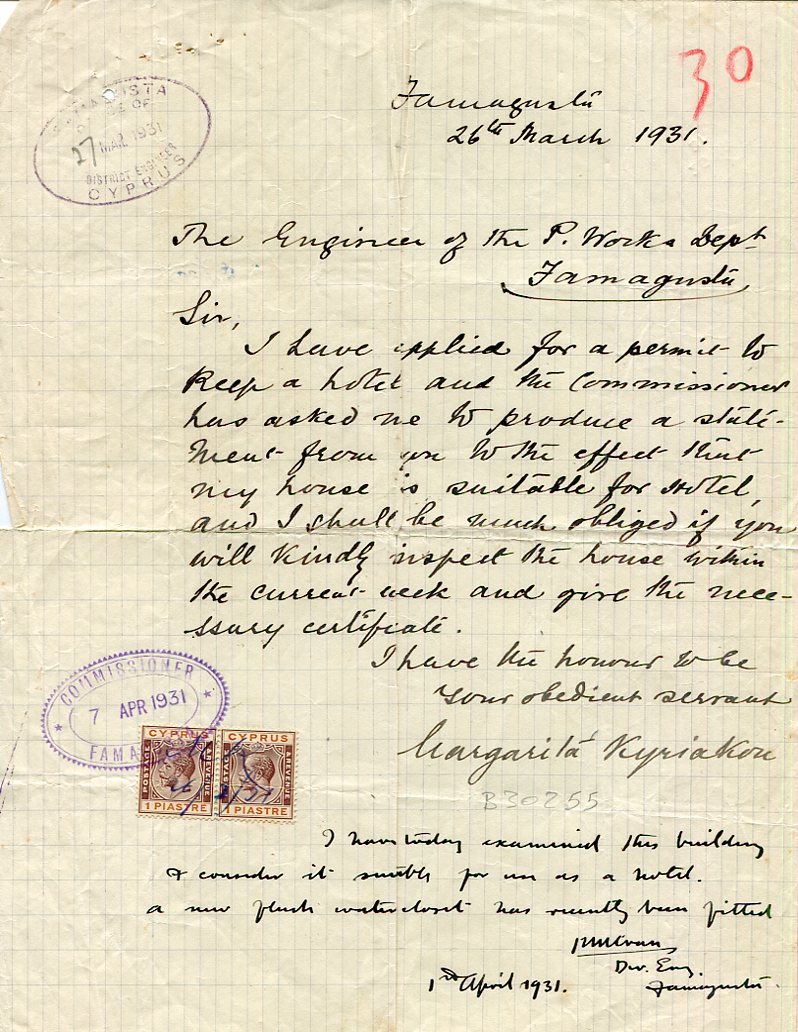 30
FAMAGUSTA
OF
27 MAR 1931
DISTRICT ENGINEER
CYPRUS
Famagusta
26th March 1931.
The Engineer of the P. Works Dept
Famagusta
Sir,
I have applied for a permit to
keep a hotel and the Commissioner
has asked me to produce a state-
ment from you to the effect that
my house is suitable for Hotel,
and I shall be much obliged if you
will kindly inspect the house within
the current week and give the nece-
ssary certificate.
I have the honour to be
Your obedient servant
Margarita Kyriakou
COMMISSIONER
7 APR 1931
FAMA
CYPRUS CYPRUS
POSTAGE REVENUE POSTAGE & REVENUE
1 PIASTRE 1 PIASTRE
B30255
I have today examined this building
& consider it suitable for use as a hotel.
a new flush watercloset has recently been fitted
Div. Eng.
1st April 1931. Famagusta.